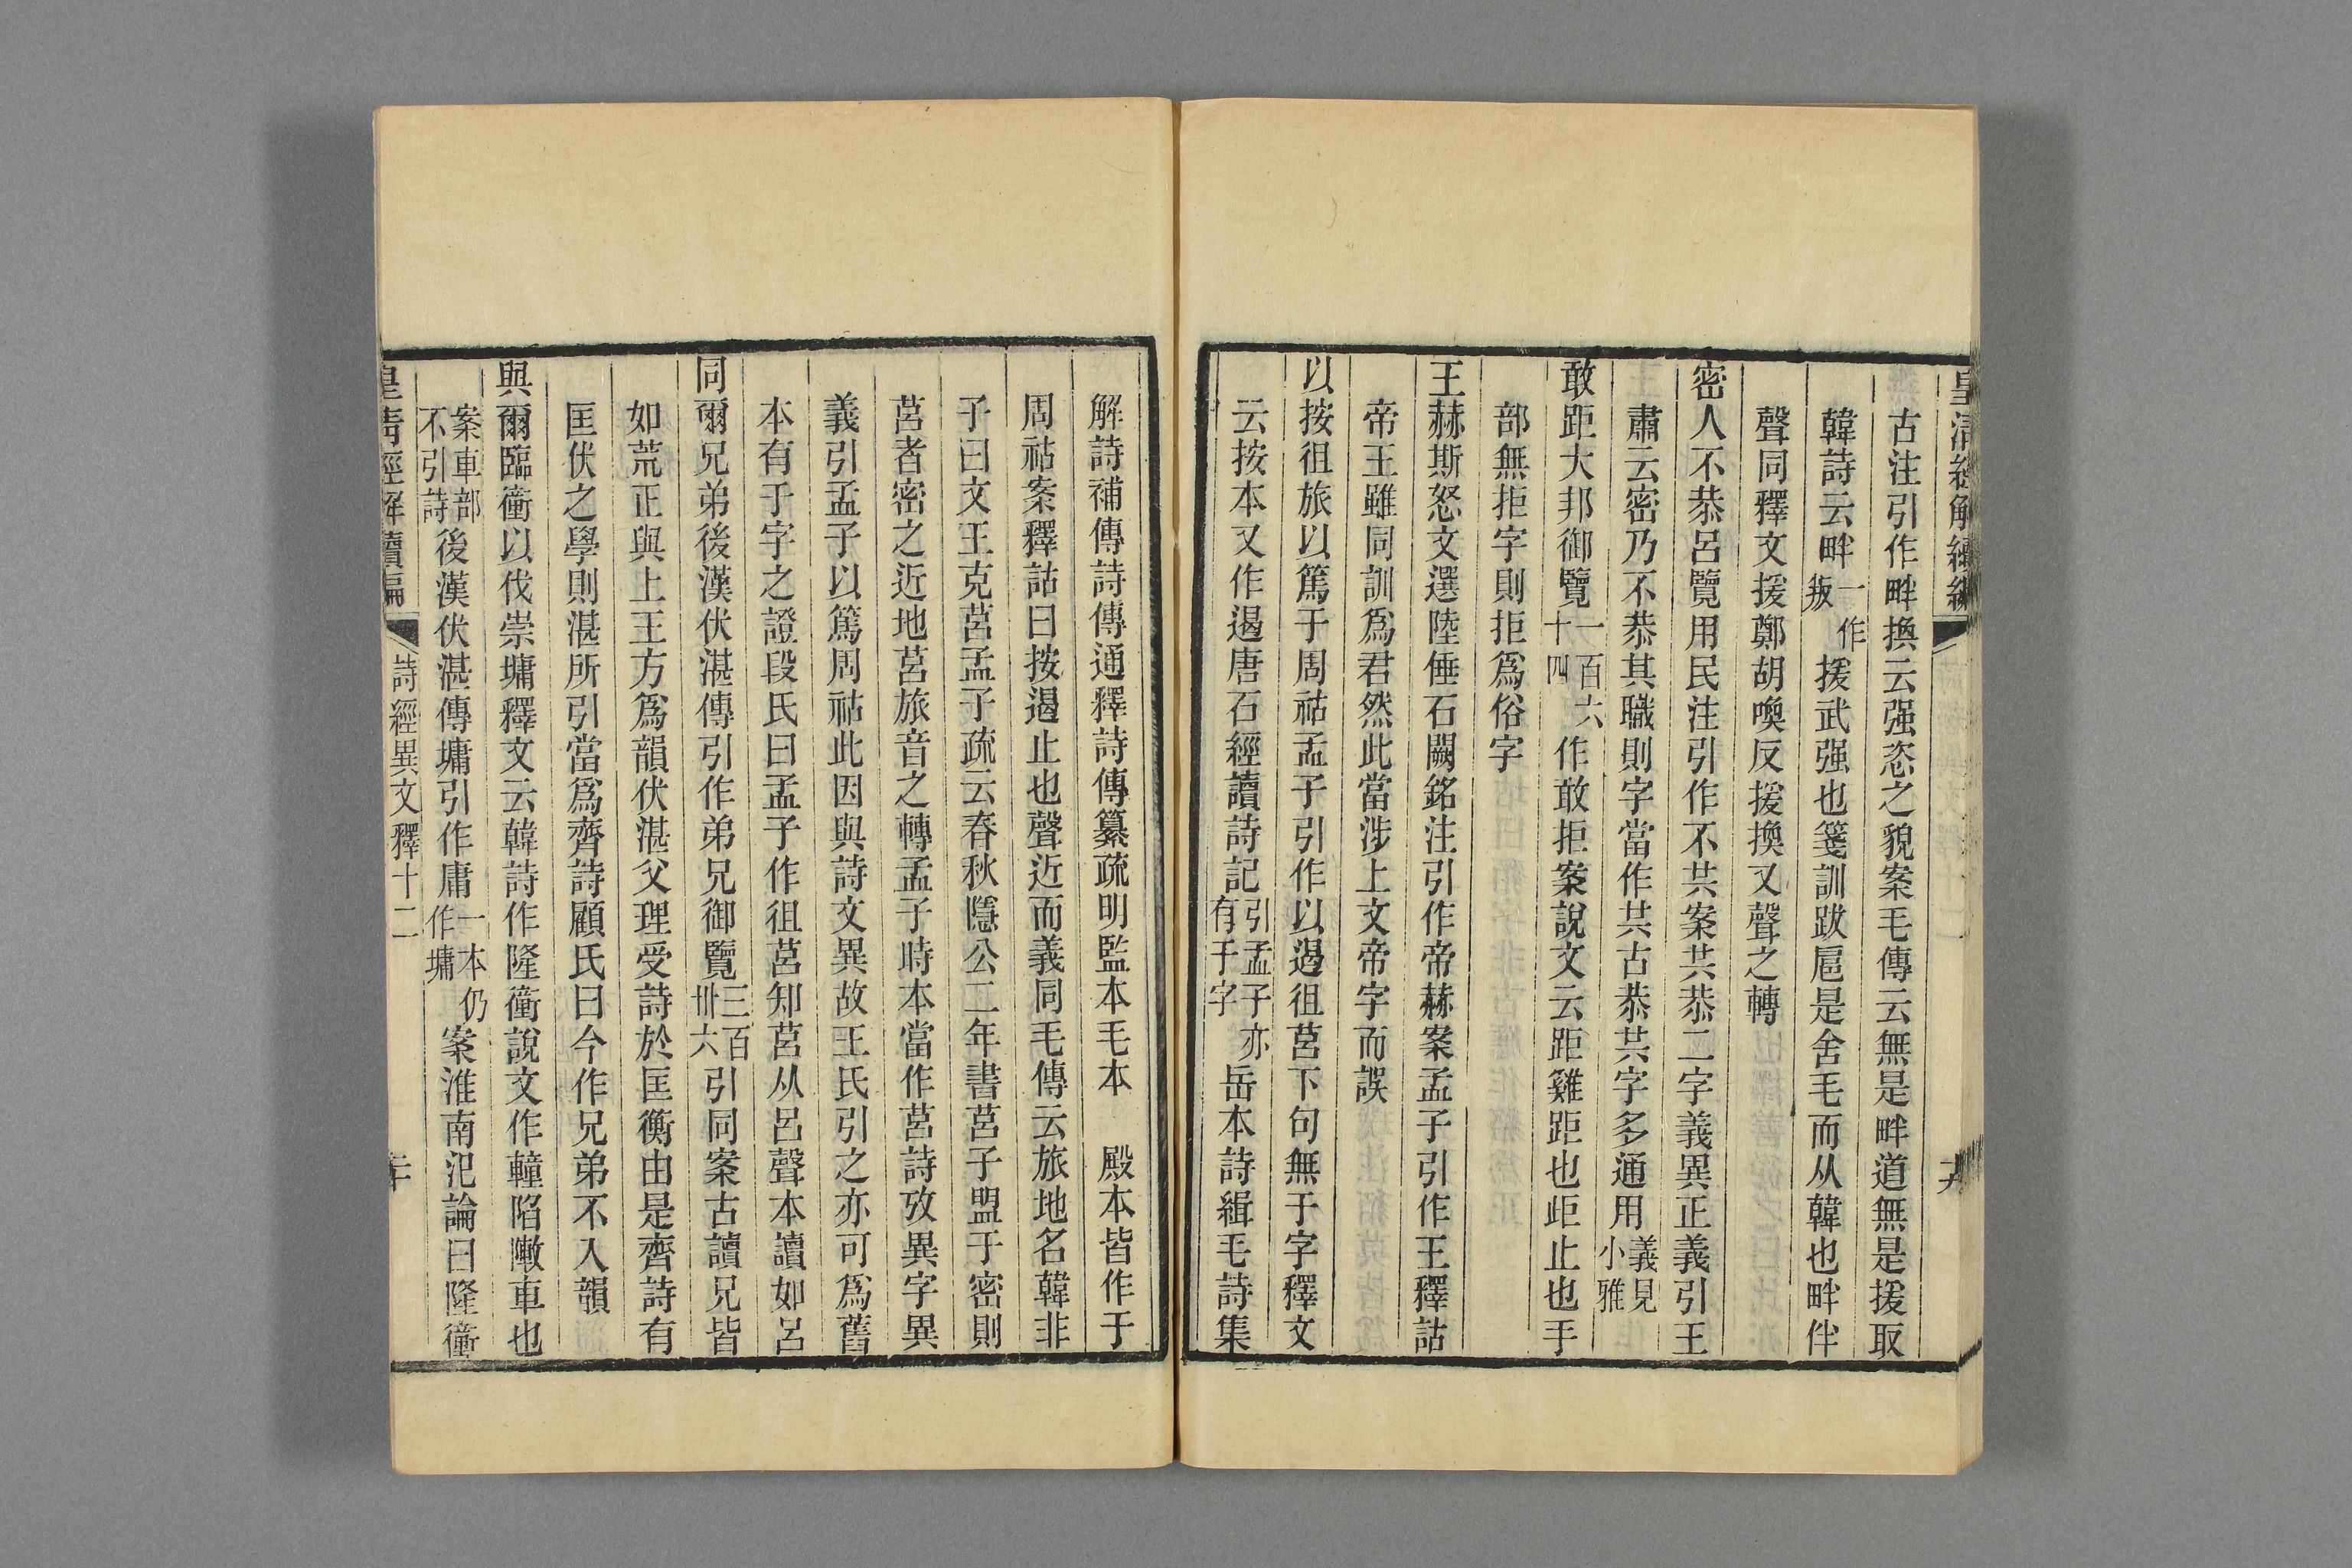 皇清經解續編
古注引作畔換云强恣之貌案毛傳云無是畔道無是援取
韓詩云畔一作叛援武强也箋訓跋扈是舍毛而从韓也畔伴
聲同釋文援鄭胡喚反援換又聲之轉
密人不恭呂覽用民注引作不共案共恭二字義異正義引王
肅云密乃不恭其職則字當作共古恭共字多通用義見小雅
敢距大邦御覽一百六十四作敢拒案說文云距雞距也歫止也手
部無拒字則拒爲俗字
王赫斯怒文選陸倕石闕銘注引作帝赫案孟子引作王釋詁
帝王雖同訓爲君然此當涉上文帝字而誤
以按徂旅以篤于周祜孟子引作以遏徂莒下句無于字釋文
云按本又作遏唐石經讀詩記引孟子亦有于字岳本詩緝毛詩集
解詩補傳詩傳通釋詩傳纂疏明監本毛本　殿本皆作于
周祜案釋詁曰按遏止也聲近而義同毛傳云旅地名韓非
子曰文王克莒孟子疏云春秋隱公二年書莒子盟于密則
莒者密之近地莒旅音之轉孟子時本當作莒詩攷異字異
義引孟子以篤周祜此因與詩文異故王氏引之亦可爲舊
本有于字之證段氏曰孟子作徂莒知莒从呂聲本讀如呂
同爾兄弟後漢伏湛傳引作弟兄御覽三百卅六引同案古讀兄皆
如荒正與上王方爲韻伏湛父理受詩於匡衡由是齊詩有
匡伏之學則湛所引當爲齊詩顧氏曰今作兄弟不入韻
與爾臨衝以伐崇墉釋文云韓詩作隆衝說文作𨏦陷敶車也
案車部不引詩後漢伏湛傳墉引作庸一本仍作墉案淮南氾論曰隆衝
皇清經解續編　詩經異文釋十二